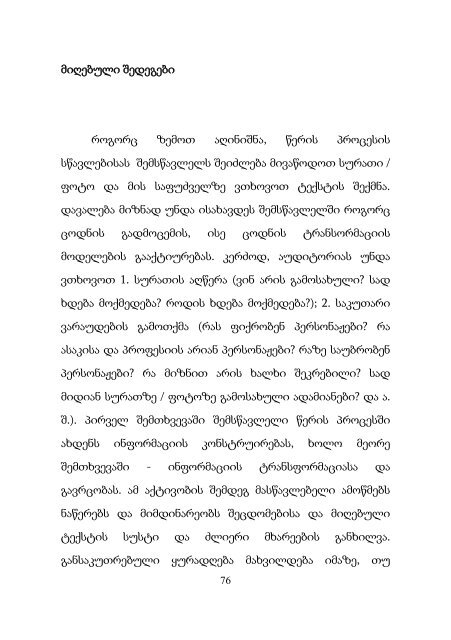 მიღებული შედეგები
როგორც ზემოთ აღინიშნა, წერის პროცესის
სწავლებისას შემსწავლელს შეიძლება მივაწოდოთ სურათი /
ფოტო და მის საფუძველზე ვთხოვოთ ტექსტის შექმნა.
დავალება მიზნად უნდა ისახავდეს შემსწავლელში როგორც
ცოდნის გადმოცემის, ისე ცოდნის ტრანსორმაციის
მოდელების გააქტიურებას. კერძოდ, აუდიტორიას უნდა
ვთხოვოთ 1. სურათის აღწერა (ვინ არის გამოსახული? სად
ხდება მოქმედება? როდის ხდება მოქმედება?); 2. საკუთარი
ვარაუდების გამოთქმა (რას ფიქრობენ პერსონაჟები? რა
ასაკისა და პროფესიის არიან პერსონაჟები? რაზე საუბრობენ
პერსონაჟები? რა მიზნით არის ხალხი შეკრებილი? სად
მიდიან სურათზე / ფოტოზე გამოსახული ადამიანები? და ა.
შ.). პირველ შემთხვევაში შემსწავლელი წერის პროცესში
ახდენს ინფორმაციის კონსტრუირებას, ხოლო მეორე
შემთხვევაში - ინფორმაციის ტრანსფორმაციასა და
გავრცობას. ამ აქტივობის შემდეგ მასწავლებელი ამოწმებს
ნაწერებს და მიმდინარეობს შეცდომებისა და მიღებული
ტექსტის სუსტი და ძლიერი მხარეების განხილვა.
განსაკუთრებული ყურადღება მახვილდება იმაზე, თუ
76